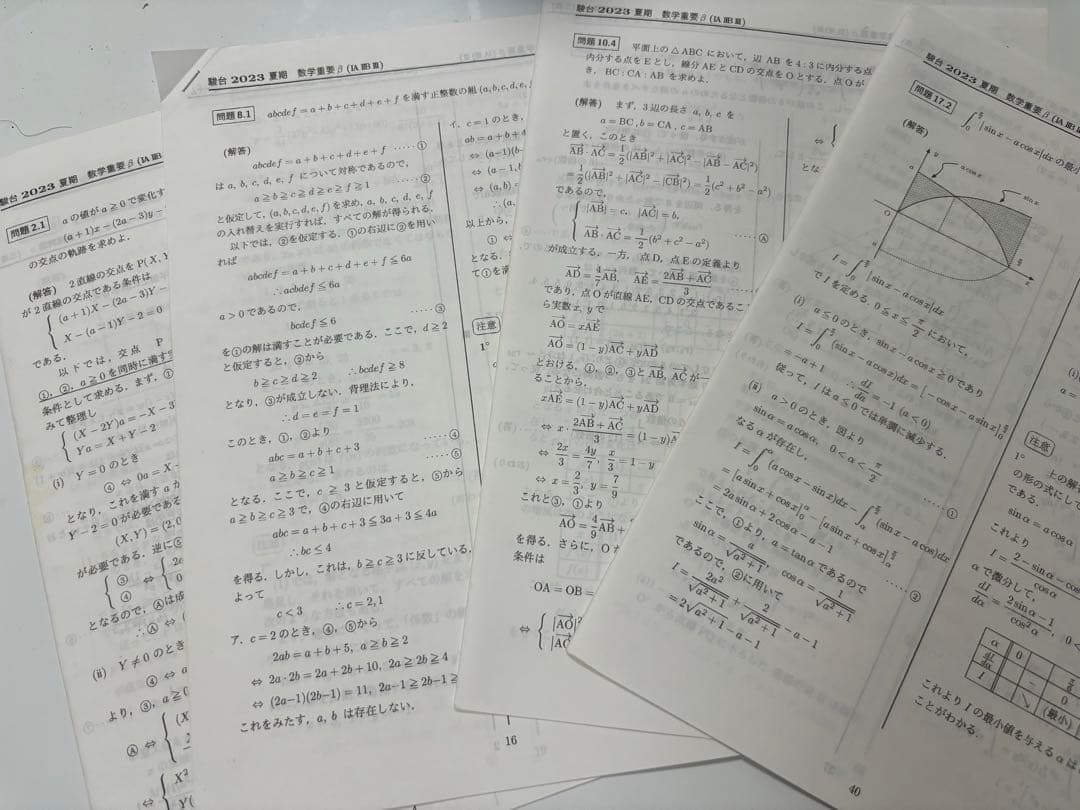 駿台 2023 夏期 数学重要β(ⅠAⅡBⅢ)
問題 2.1 aの値が a≧0 で変化す
(a+1)x-(2a-3)y-
の交点の軌跡を求めよ.
(解答) 2直線の交点を P(X, Y
が2直線の交点である条件は
(a+1)X-(2a-3)Y-
X-(a-1)Y-2=0
である.
以下では, 交点 P
①, ②, a≧0 を同時に満す
条件として求める. まず, ①
みて整理し
(X-2Y)a=-X-3
Ya=X+Y-2
(i) Y=0 のとき
④ ⇔ 0a=X-
となり, これを満す a が
Y-2=0 が必要である
(X,Y)=(2,0
が必要である. 逆に⑤
③
④ ⇔ { 2a
0
となるので, Ⓐは成
∴Ⓐ ⇔
(ii) Y≠0 のとき
④ ⇔ a
より, ③, a≧0
Ⓐ ⇔ { (X
⇔ { X²
Y(
駿台 2023 夏期 数学重要β(ⅠAⅡBⅢ)
問題 8.1 abcdef=a+b+c+d+e+f を満す正整数の組 (a,b,c,d,e,f
(解答)
abcdef=a+b+c+d+e+f ‥‥‥①
は a, b, c, d, e, f について対称であるので,
a≧b≧c≧d≧e≧f≧1 ‥‥‥②
と仮定して, (a,b,c,d,e,f) を求め, a, b, c, d, e, f
の入れ替えを実行すれば, すべての解が得られる.
以下では, ②を仮定する. ①の右辺に②を用い
れば
abcdef=a+b+c+d+e+f≦6a
∴acbdef≦6a
a>0 であるので,
bcdef≦6 ‥‥‥③
を①の解は満すことが必要である. ここで, d≧2
と仮定すると, ②から
b≧c≧d≧2 ∴bcdef≧8
となり, ③が成立しない. 背理法により,
∴d=e=f=1
このとき, ①, ②より
abc=a+b+c+3 ‥‥‥④
a≧b≧c≧1 ‥‥‥⑤
となる. ここで, c≧3 と仮定すると, ⑤から
a≧b≧c≧3 で, ④の右辺に用いて
abc=a+b+c+3≦3a+3≦4a
∴bc≦4
を得る. しかし, これは, b≧c≧3 に反している.
よって
c<3 ∴c=2,1
ア. c=2 のとき, ④, ⑤から
2ab=a+b+5, a≧b≧2
⇔ 2a·2b=2a+2b+10, 2a≧2b≧4
⇔ (2a-1)(2b-1)=11, 2a-1≧2b-1≧
これをみたす, a, b は存在しない.
イ. c=1 のとき,
ab=a+b+4
⇔ (a-1)(b-
⇔ (a-1,b
⇔ (a,b)=
∴(a,
以上から,
① ⇔
となる.
て①を満
注意
1°
16
駿台 2023 夏期 数学重要β(ⅠAⅡBⅢ)
問題 10.4 平面上の △ABC において, 辺 AB を 4:3 に内分する点
内分する点を E とし, 線分 AE と CD の交点を O とする. 点 O が
き, BC:CA:AB を求めよ.
(解答) まず, 3辺の長さ a, b, c を
a=BC, b=CA, c=AB
と置く. このとき
AB·AC=1/2(|AB|²+|AC|²-|AB-AC|²)
=1/2(|AB|²+|AC|²-|CB|²)=1/2(c²+b²-a²)
であるので,
|AB|=c, |AC|=b,
AB·AC=1/2(b²+c²-a²) ‥‥‥Ⓐ
が成立する. 一方, 点D, 点Eの定義より
AD=4/7AB, AE=(2AB+AC)/3
であり, 点 O が直線 AE, CD の交点であるこ
ら実数 x, y で
AO=xAE
AO=(1-y)AC+yAD
とおける. ①, ②, ③と AB, AC が一
ることから,
xAE=(1-y)AC+yAD
⇔ x·(2AB+AC)/3=(1-y)A
⇔ 2x/3=4y/7, x/3=1-y
⇔ x=2/3, y=7/9
これと③, ①より
AO=4/9AB+
を得る. さらに, O が
条件は
OA=OB=
⇔ { |AO|²
|AC
⇔
とな
駿台 2023 夏期 数学重要β(ⅠAⅡBⅢ
問題 17.2 ∫₀^{π/2}|sin x-a cos x|dx の最小
(解答)
y
a cos x
sin x
a
O
α
π/2
x
I=∫₀^{π/2}|sin x-a cos x|dx
で I を定める. 0≦x≦π/2 において,
(i) a≦0 のとき, sin x-a cos x≧0 であり
I=∫₀^{π/2}(sin x-a cos x)dx=[-cos x-a sin x]₀^{π/2}
=-a+1 ∴dI/da=-1 (a<0)
従って, I は a≦0 では単調に減少する.
(ii) a>0 のとき, 図より
sin α=a cos α, 0<α<π/2 ‥‥‥①
なる α が存在し,
I=∫₀^α(a cos x-sin x)dx-∫_α^{π/2}(sin x-a cos x)dx
=[a sin x+cos x]₀^α-[a sin x+cos x]_α^{π/2}
=2a sin α+2cos α-a-1 ‥‥‥②
ここで, ①より, a=tan α であるので
sin α=a/√(a²+1), cos α=1/√(a²+1)
であるので, ②に用いて
I=2a²/√(a²+1)+2/√(a²+1)-a-1
=2√(a²+1)-a-1
注意
1° 上の解答
の形の式にして
である.
sin α=a cos α
これより
I=(2-sin α-cos α)/cos α
α で微分して,
dI/dα=(2sin α-1)/cos²α
α 0 π/2
dI/dα - 0
I ↘ (最小)
これより I の最小値を与える α は
ことがわかる.
40